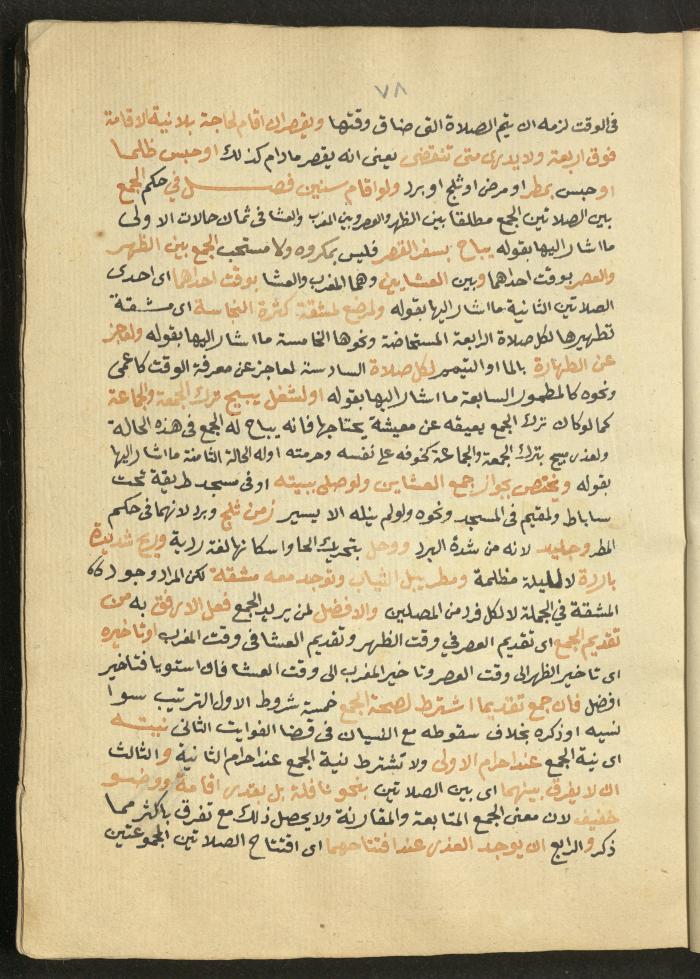 ٧٨
فى الوقت لزمه ان يتم الصلاة التى ضاق وقتها ويقصر ان اقام لحاجة بلا نية الاقامة
فوق اربعة ولا يدرى متى تنقضى يعنى انه يقصر مادام كذلك او حبس ظلما
او حبس بمطر او مرض او ثلج او برد ولو اقام سنين فصل في حكم الجمع
بين الصلاتين الجمع مطلقا بين الظهر والعصر وبين المغرب والعشا فى ثمان حالات الاولى
ما اشار اليها بقوله يباح بسفر القصر فليس بمكروه ولا مستحب الجمع بين الظهر
والعصر بوقت احداهما وبين العشايين وهما المغرب والعشا بوقت احداهما اى احدى
الصلاتين الثانية ما اشار اليها بقوله ولمرضع لمشقة كثرة النجاسة اى مشقة
تطهيرها لكل صلاة الرابعة المستحاضة ونحوها الخامسة ما اشار اليها بقوله ولعاجز
عن الطهارة بالما او التيمم لكل صلاة السادسة لعاجز عن معرفة الوقت كاعمى
ونحوه كالمطمور السابعة ما اشار اليها بقوله او لشغل يبيح ترك الجمعة والجماعة
كما لو كان ترك الجمع يعيقه عن معيشة يحتاجها فانه يباح له الجمع فى هذه الحالة
ولعذر يبيح بترك الجمعة والجماعة كخوفه على نفسه وحرمته اوله الحالة الثامنة ما اشار اليها
بقوله ويختص بجواز جمع العشاين ولو صلى ببيته او فى مسجد طريقة تحت
ساباط ولمقيم فى المسجد ونحوه ولو لم ينله الا يسير زمن ثلج وبرد لانهما فى حكم
المطر وجليد لانه من شدة البرد ووحل بتحريك الحا واسكانها لغة ردية وريح شديدة
باردة لا لليلة مظلمة ومطر يبل الثياب وتوجد معه مشقة لكن المراد وجود
المشقة فى الجملة لا لكل فرد من المصلين والافضل لمن يريد الجمع فعل الارفق به من
تقديم الجمع اى تقديم العصر في وقت الظهر وتقديم العشا فى وقت المغرب او تاخيره
اى تاخير الظهر الى وقت العصر وتاخير المغرب الى وقت العشا فان استويا فتاخير
افضل فان جمع تقديما اشترط لصحة الجمع خمسة شروط الاول الترتيب سوا
نسيه او ذكره بخلاف سقوطه مع النسيان فى قضا الفوايت الثانى نيته
اى نية الجمع عند احرام الاولى ولا تشترط نية الجمع عند احرام الثانية والثالث
ان لا يفرق بينهما اى بين الصلاتين بنحو نافلة بل بقدر اقامة ووضو
خفيف لان معنى الجمع المتابعة والمقارنة ولا يحصل ذلك مع تفرق باكثر مما
ذكر والرابع ان يوجد العذر عند افتتاحهما اى افتتاح الصلاتين المجموعتين